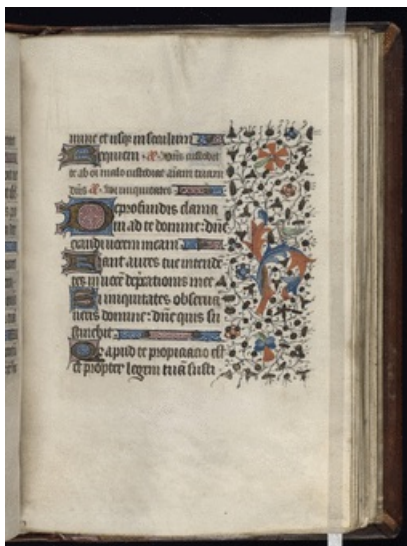 nunc et usq in seculum
Requiem · a͞ · Dn̄s custodit
te ab oi malo custodiat aīam tuam
dn̄s a͞ · Si iniquitates
De profundis clama
ui ad te domine: dn̄e
exaudi uocem meam
Fiant aures tue intende
tes in uocē dep̄cationis mee
Si iniquitates obserua
ueris domine: dn̄e quis su
stinebit
Q apud te propiciacio est
et propter legem tuā susti